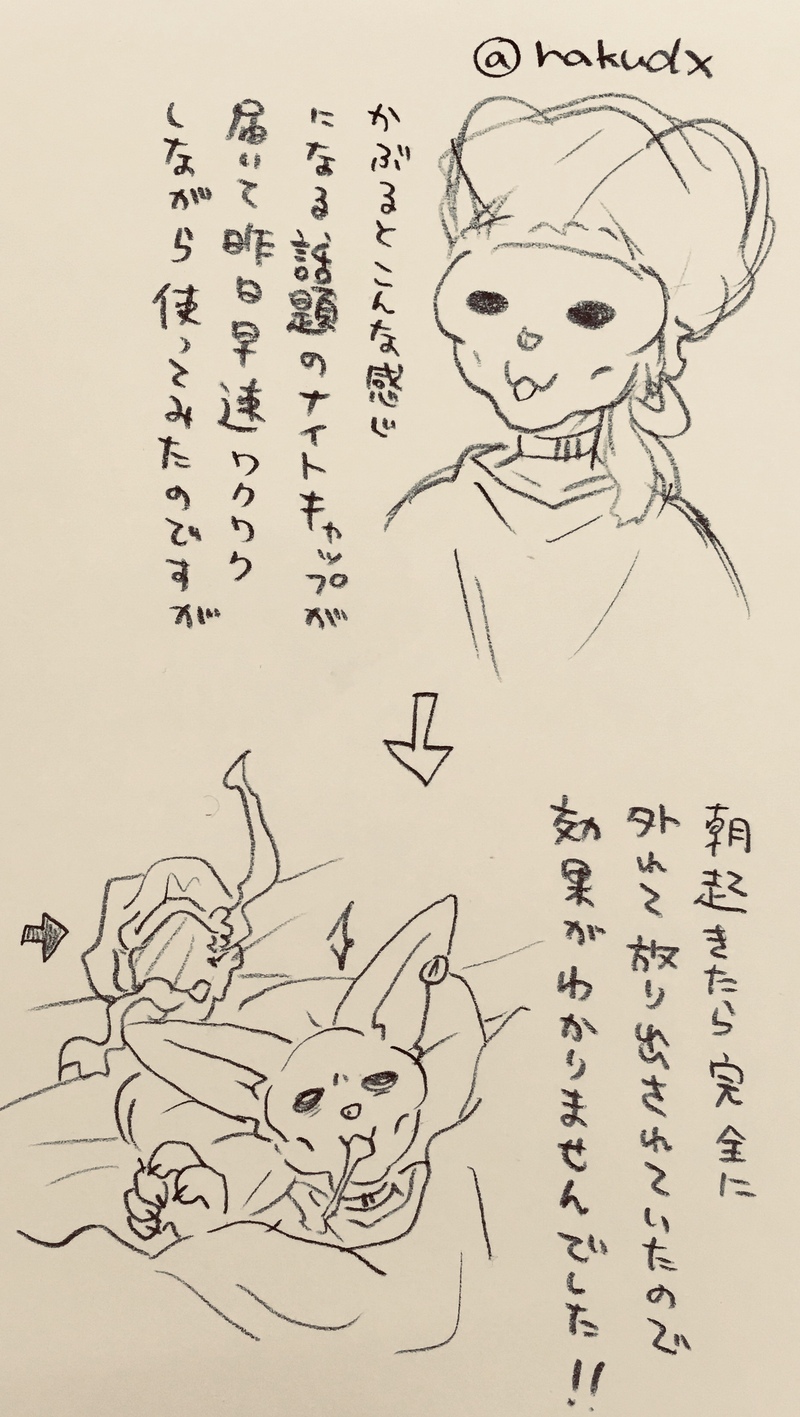 @hakudx
かぶるとこんな感じ
になる話題のナイトキャップが
届いて昨日早速ワクワク
しながら使ってみたのですが
朝起きたら完全に
外れて放り出されていたので
効果がわかりませんでした!!